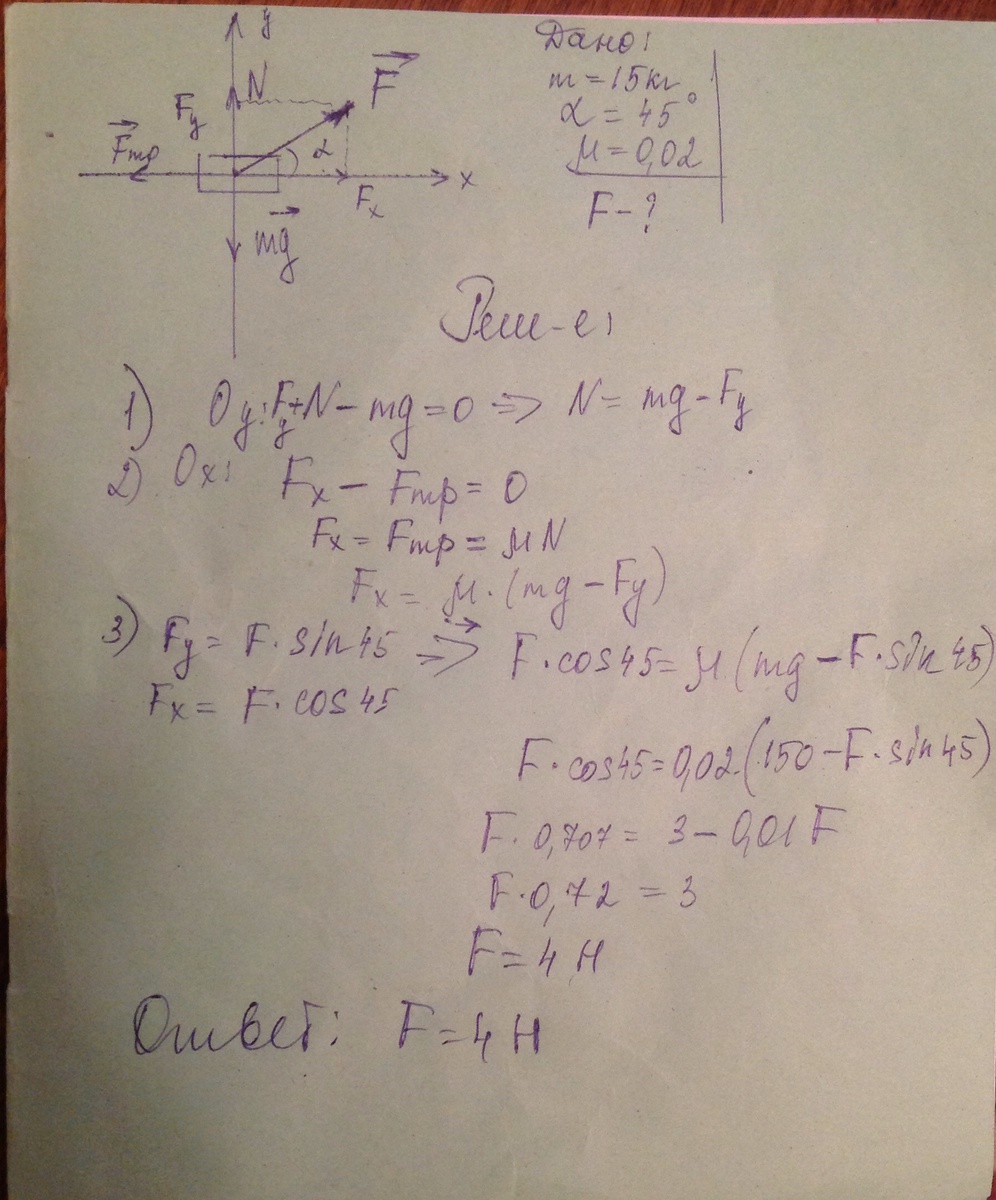 y
N
F
Fy
α
Fтр
x
Fx
mg
Дано:
m = 15кг
α = 45°
μ = 0,02
F - ?
Реш-е:
1) Oy: Fy + N - mg = 0 => N = mg - Fy
2) Ox: Fx - Fтр = 0
Fx = Fтр = μN
Fx = μ · (mg - Fy)
3) Fy = F · sin 45 => F · cos 45 = μ (mg - F · sin 45)
Fx = F · cos 45
F · cos 45 = 0,02 · (150 - F · sin 45)
F · 0,707 = 3 - 0,01 F
F · 0,72 = 3
F = 4 Н
Ответ: F = 4 Н